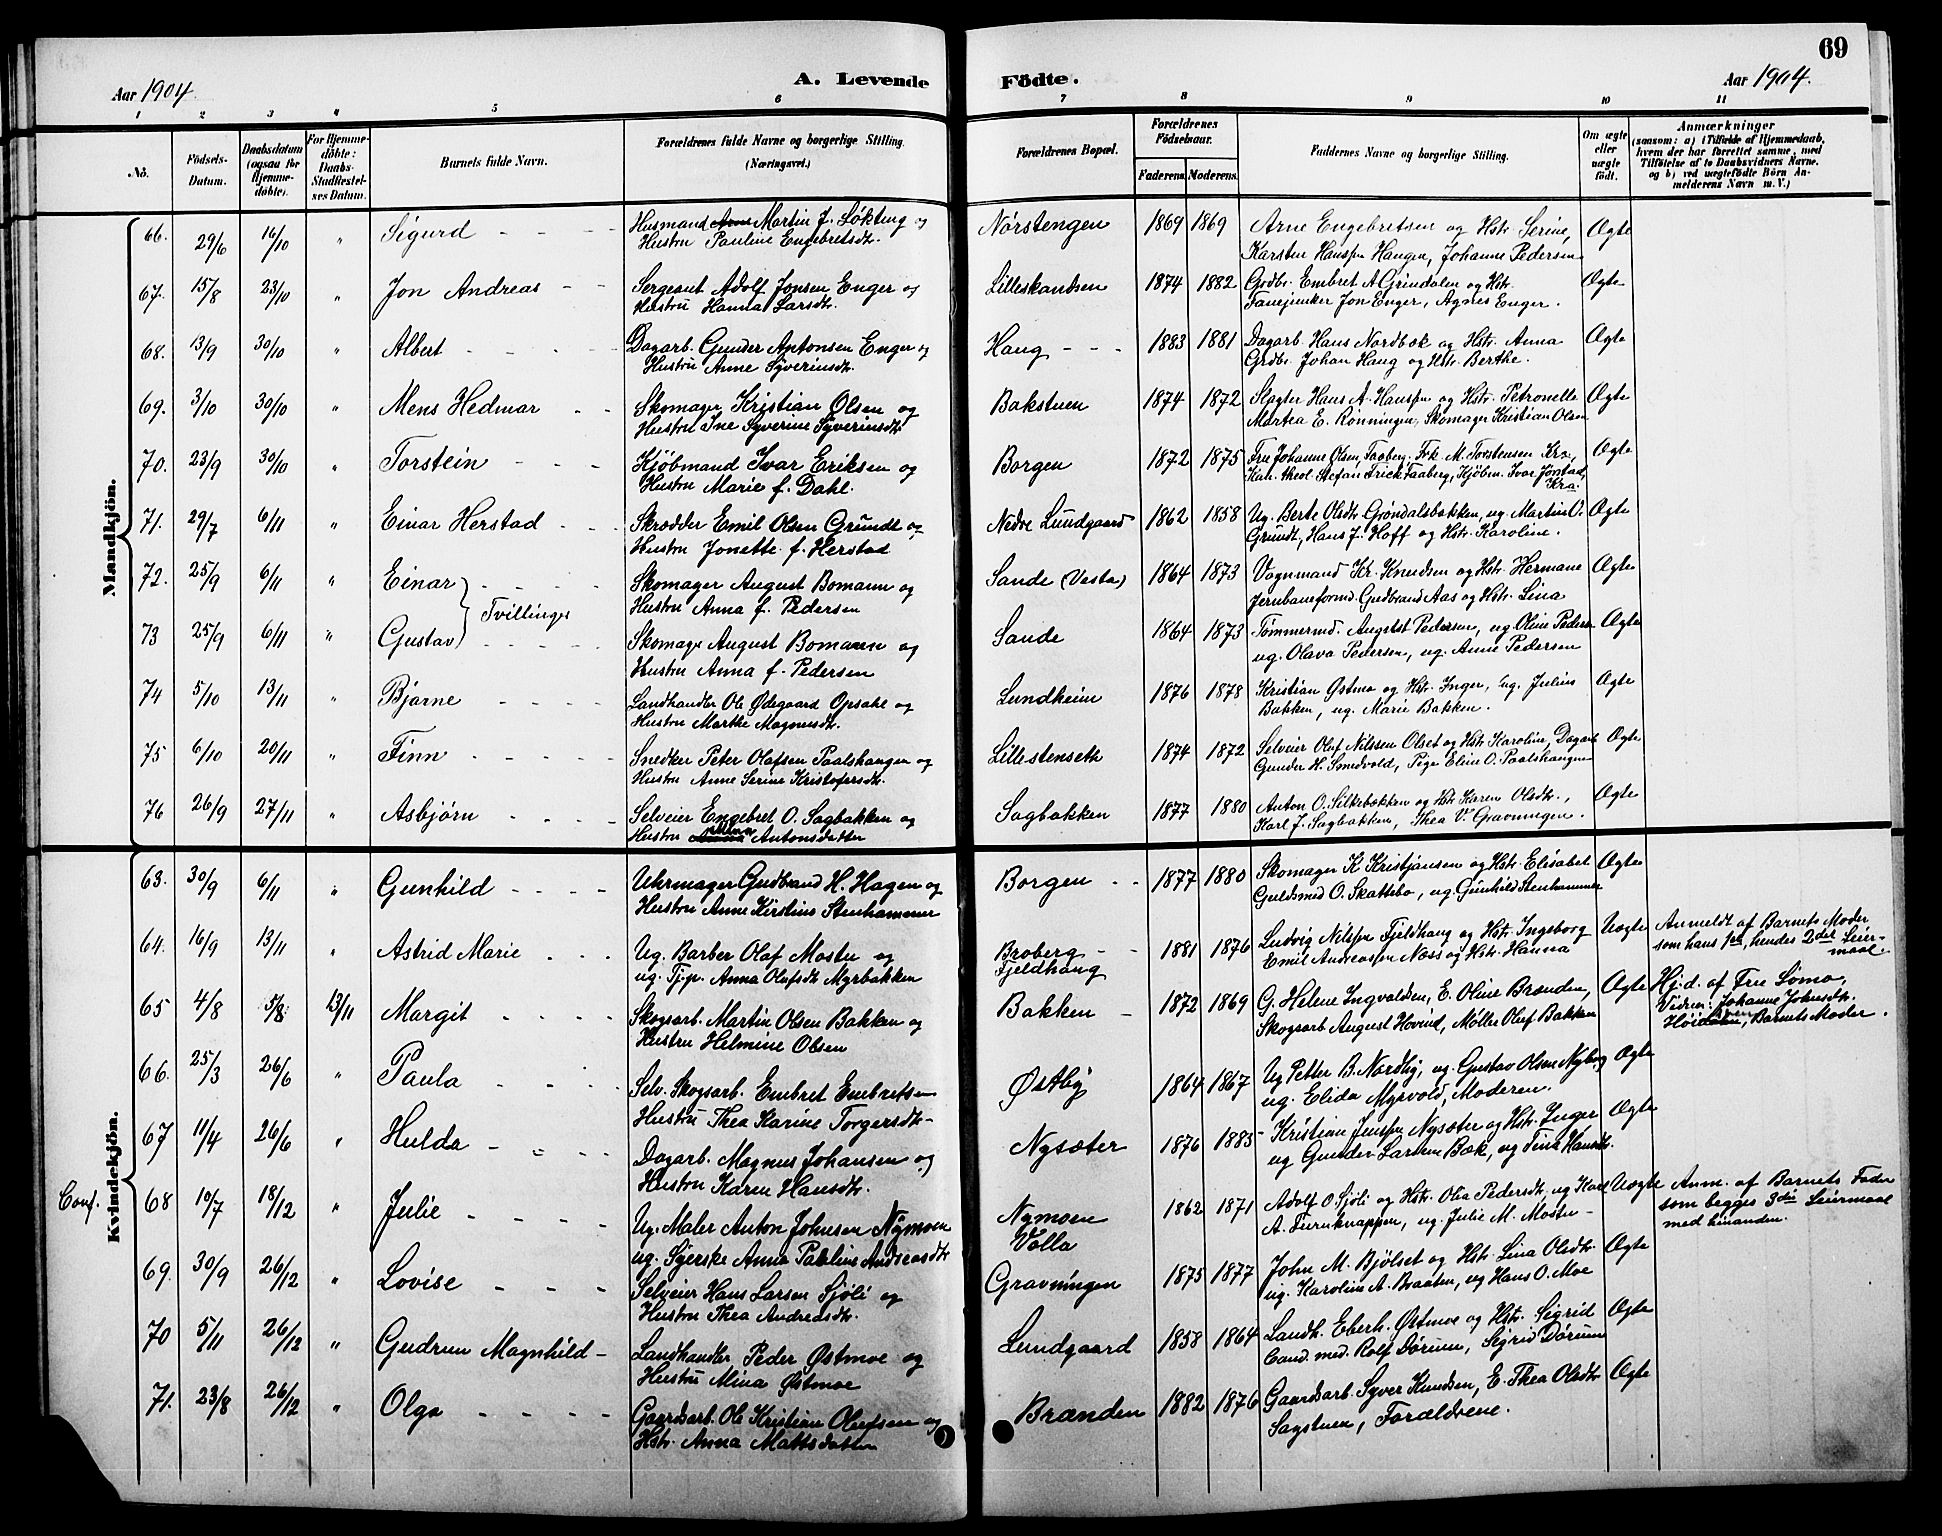 69
Aar 1904.
A. Levende Födte.
Aar 1904.
1 2 3 4 5 6 7 8 9 10 11
No.
Födsels-Datum.
Daabsdatum (ogsaa for Hjemme-döbte).
For Hjemme-döbte: Daabs-Stadfæstel-ses Datum.
Barnets fulde Navn.
Forældrenes fulde Navne og borgerlige Stilling.
(Næringsvei.)
Forældrenes Bopæl.
Forældrenes Födselsaar.
Faderens. Moderens.
Faddernes Navne og borgerlige Stilling.
Om ægte eller uægte födt.
Anmærkninger
(saasom: a) i Tilfælde af Hjemmedaab,
hvem der har forrettet samme, med
Tilföielse af to Daabsvidners Navne.
og b) ved uægtefödte Börn An-
melderens Navn m. V.)
Mandkjön.
66. 29/6 16/10 " Sigurd Husmand Martin J. Løkteng og Nørstengen 1869 1869 Arne Engebretsen og Hstr. Serine, Ægte
Hustru Pauline Engebretsdt. Karsten Hanssen Haugen, Johanne Pedersen
67. 15/8 23/10 " Jon Andreas Sergeant Adolf Jonsen Enger og Lilleskandsen 1874 1882 Grdbr. Embret A Grindalen og Hstr. Ægte
Hustru Hanna Larsdt. Fanejunker Jon Enger, Agnes Enger.
68. 13/9 30/10 " Albert Dagarb. Gunder Antonsen Enger og Haug 1883 1881 Dagarb. Hans Nordbæk og Hstr. Anna Ægte
Hustru Anne Syverinsdt. Grdbr. Johan Haug og Hstr. Berthe.
69. 3/10 30/10 " Mens Hedmar Skomager Kristian Olsen og Bakstuen 1874 1872 Slagter Hans A. Hanssen og Hstr. Petronelle Ægte
Hustru Ine Syverine Syverinsdt. Martea E. Rønningen, Skomager Kristian Olsen
70. 23/9 30/10 " Torstein Kjöbmand Ivar Eriksen og Borgen 1872 1875 Fru Johanne Olsen, Faaberg. Frk. M. Torstensen Kra, Ægte
Hustru Marie f. Dahl. Kan. theol. Stefan Frick Faaberg, Kjöbm. Ivar Jonstad, Kra.
71. 29/7 6/11 " Einar Herstad Skrædder Emil Olsen Grundt og Nedre Lundgaard 1862 1858 Ug. Berte Olsdtr. Grøndalsbakken, ug. Martin O. Ægte
Hustru Jonette f. Herstad Grundt, Hans J. Hoff og Hstr. Karoline.
72. 25/9 6/11 " Einar Skomager August Bomann og Sande (Vesta) 1864 1873 Vognmand Kr. Knudsen og Hstr. Hermane Ægte
Tvillinger Hustru Anna f. Pedersen Jernbaneformd. Gudbrand Aas og Hstr. Lina
73 25/9 6/11 " Gustav Skomager August Bomann og Sande 1864 1873 Tømmermd. August Pedersen, ug. Oline Peders. Ægte
Hustru Anna f. Pedersen ug. Olava Pedersen, ug. Anne Pedersen
74 5/10 13/11 " Bjarne Landhandler Ole Ødegaard Opsahl og Lundheim 1876 1878 Kristian Østmo og Hstr. Inger, ug. Julius Ægte
Hustru Marthe Magnusdt. Bakken, ug. Marie Bakken.
75 6/10 20/11 " Finn Snedker Peter Olafsen Paalshaugen og Lillestenseth 1874 1872 Selveier Oluf Nilssen Olset og Hstr. Karoline, Dagarb. Ægte
Hustru Anne Serine Kristofersdt. Gunder H. Smedvold, Pige Eline O. Paalshaugen
76 26/9 27/11 " Asbjørn Selveier Engebret O. Sagbakken og Sagbakken 1877 1880 Anton O. Silkebækken og Hstr. Karen Olsdtr., Ægte
Hustru Antonsdatter Karl J. Sagbakken, Thea V. Gravningen.
Kvindekjön.
63. 30/9 6/11 " Gunhild Uhrmager Gudbrand H. Hagen og Borgen 1877 1880 Skomager K Kristjansen og Hstr. Elisabet Ægte
Hustru Anne Kirstine Stenhammer Guldsmed O. Skattebo, ug. Gunhild Stenhammer
64. 16/9 13/11 " Astrid Marie Ug. Barber Olaf Mostu og Broberg 1881 1876 Ludvig Nilssen Fjeldhaug og Hstr. Ingeborg Uægte Anmeldt af Barnets Moder
ug. Tjp. Anna Olufsdt. Myrbakken Fjeldhaug Emil Andreassen Næss og Hstr. Hanna som hans 1ste, hendes 2det Leier-maal.
65 4/8 5/8. 13/11 Margit Skogsarb. Martin Olsen Bakken og Bakken 1872 1869 G. Helene Ingvaldsen, E. Oline Brænden, Ægte Hj.d. af Fru Sømo,
Hustru Helmine Olsen Skogsarb August Hovind, Møller Oluf Bakken Vidner: Johanne Johnsdtr. Barnets Moder.
66. 25/3 26/6 " Paula Selv. Skogsarb. Embret Embretsen Østby 1864 1867 Ug Petter B. Nordby, ug. Gustav Olsen Nyborg Ægte
Hustru Thea Karine Torgersdtr. ug. Elida Myrvold, Moderen.
67 11/4 26/6 " Hulda Dagarb. Magnus Johansen og Nysæter 1876 1883 Kristian Jenssen Nysæter og Hstr. Inger Ægte
Hustru Karen Hansdtr. ug Gunder Larsen Bæk, ug Tina Hansdtr.
Conf. 68 10/7 18/12 " Julie Ug. Maler Anton Johnsen Nymoen Nymoen 1862 1871 Adolf O. Sjöli og Hstr. Olia Pedersdt, ug Karl Uægte Anm. af Barnets Fader
ug. Syerske Anna Pauline Andreasdtr. Volla A. Furuknappen, ug. Julie M. Mostu som begges 3die Leiermaal
med hinanden.
69. 30/9 26/12 " Lovise Selveier Hans Larsen Sjöli og Gravningen 1875 1877 John M. Bjölset og Hstr. Lina Olsdtr. Ægte
Hustru Thea Andreasdtr. ug. Karoline A. Braaten, ug Hans O. Moe
70 5/11 26/12 " Gudrun Magnhild Landhandler Peder Østmoe og Lundgaard 1858 1864 Landh. Eberh. Østmoe og Hstr. Sigrid Ægte
Hustru Mina Østmoe Cand. med. Rolf Dørum, Sigrid Dørum
71. 23/8 26/12 " Olga Gaardsarb. Ole Kristian Olufsen og Brænden 1882 1876 Gaardsarb. Syver Knudsen, E. Thea Olsdtr. Ægte
Hstr. Anna Mattsdatter Sagstuen, Forældrene.